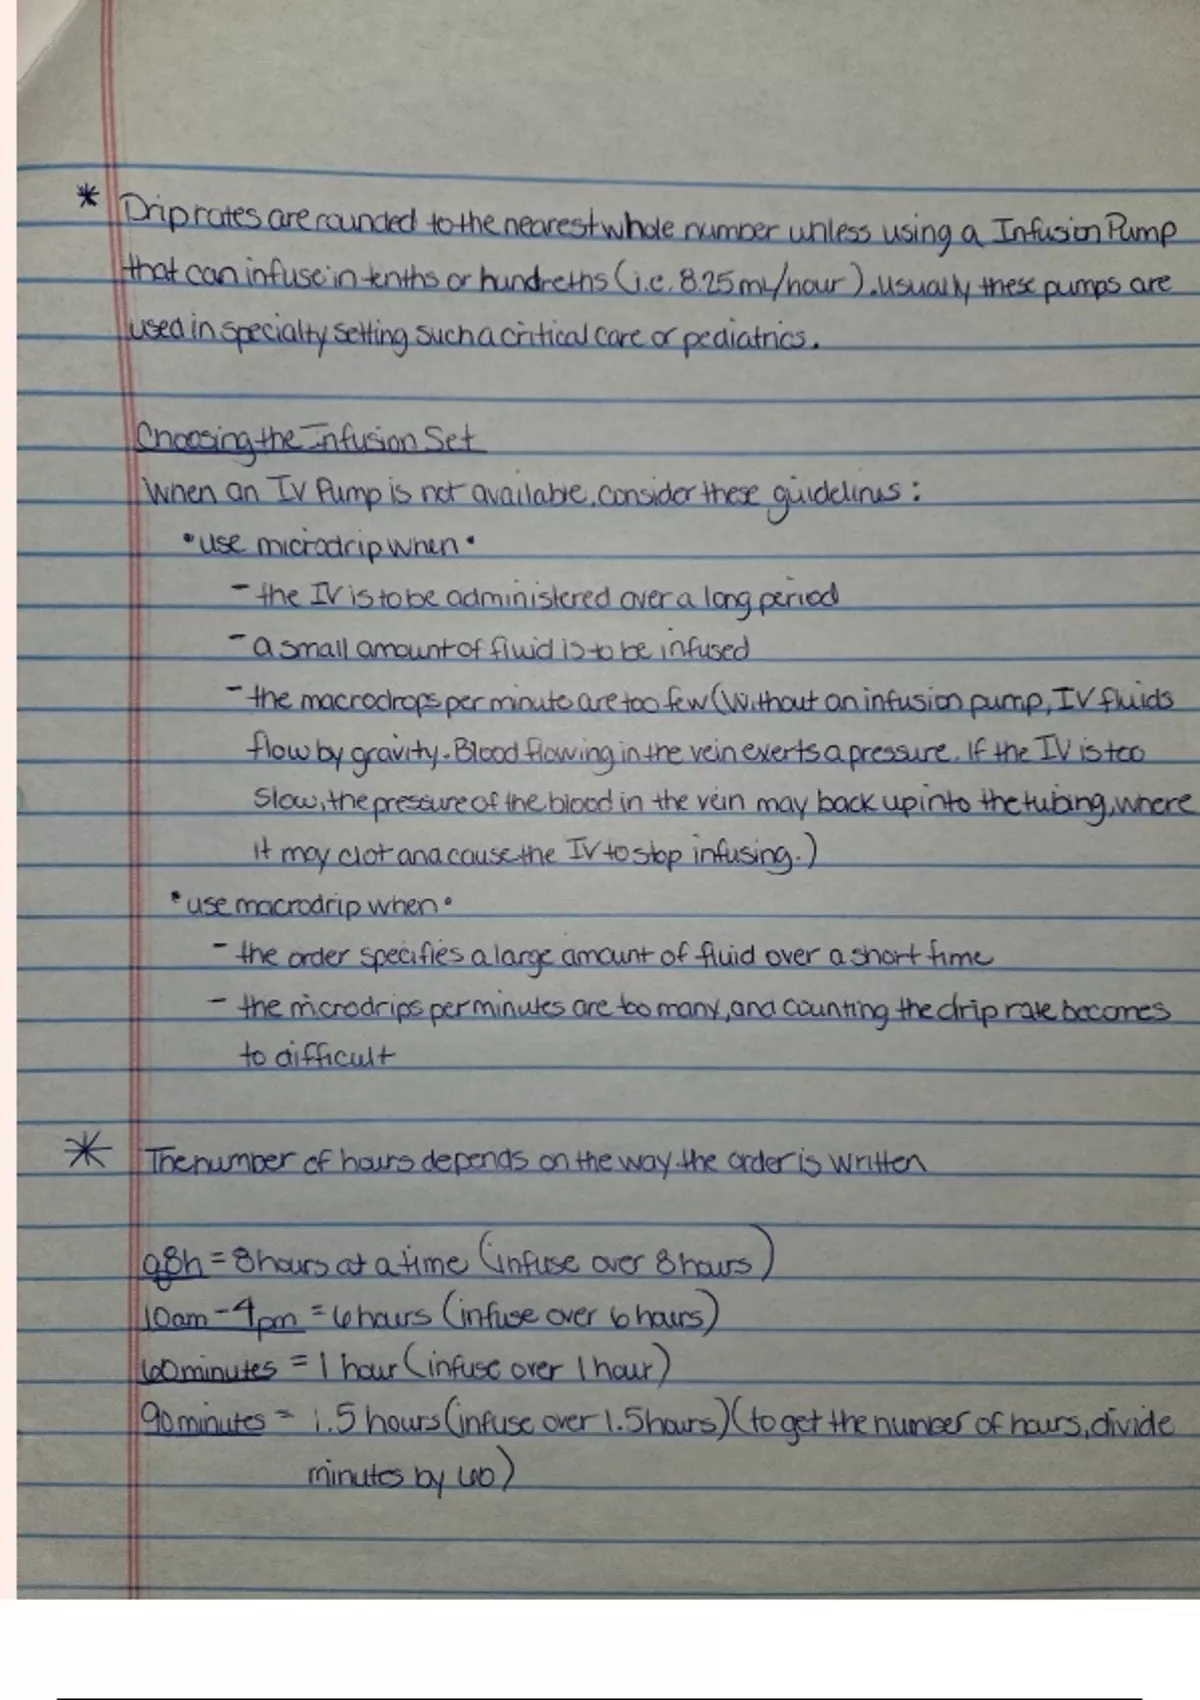 * Drip rates are rounded to the nearest whole number unless using a Infusion Pump
that can infuse in tenths or hundreths (i.e. 8.25 mL/hour). Usually these pumps are
used in specialty setting such a critical care or pediatrics.
Choosing the Infusion Set
When an IV Pump is not available, consider these guidelines:
• use microdrip when •
- the IV is to be administered over a long period
- a small amount of fluid is to be infused
- the macrodrops per minute are too few (Without an infusion pump, IV fluids
flow by gravity. Blood flowing in the vein exerts a pressure. If the IV is too
slow, the pressure of the blood in the vein may back up into the tubing, where
it may clot and cause the IV to stop infusing.)
• use macrodrip when •
- the order specifies a large amount of fluid over a short time
- the microdrips per minutes are too many, and counting the drip rate becomes
to difficult
* The number of hours depends on the way the order is written
q8h = 8 hours at a time (infuse over 8 hours)
10am - 4pm = 6 hours (infuse over 6 hours)
60 minutes = 1 hour (infuse over 1 hour)
90 minutes = 1.5 hours (infuse over 1.5 hours) (to get the number of hours, divide
minutes by 60)